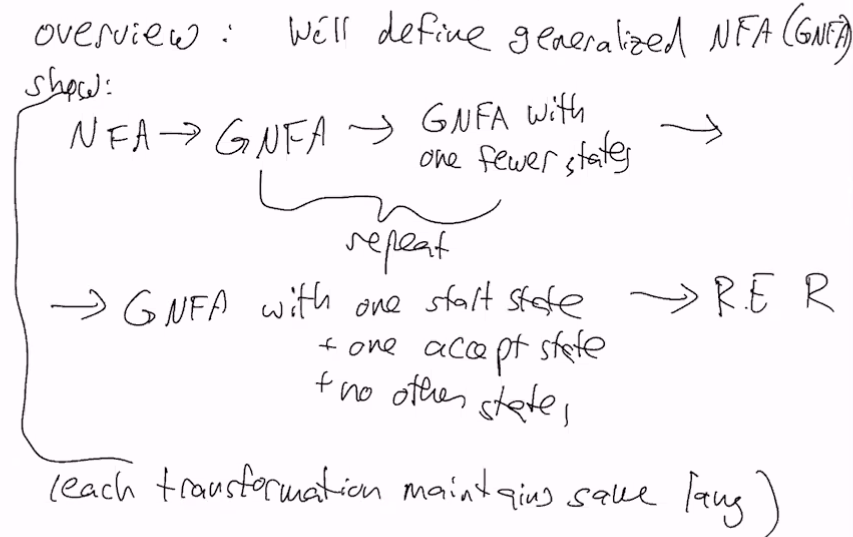 overview : Will define generalized NFA (GNFA)
show:
NFA → GNFA → GNFA with
one fewer states →
repeat
→ GNFA with one start state → R.E R
+ one accept state
+ no other states
(each transformation maintains same lang)